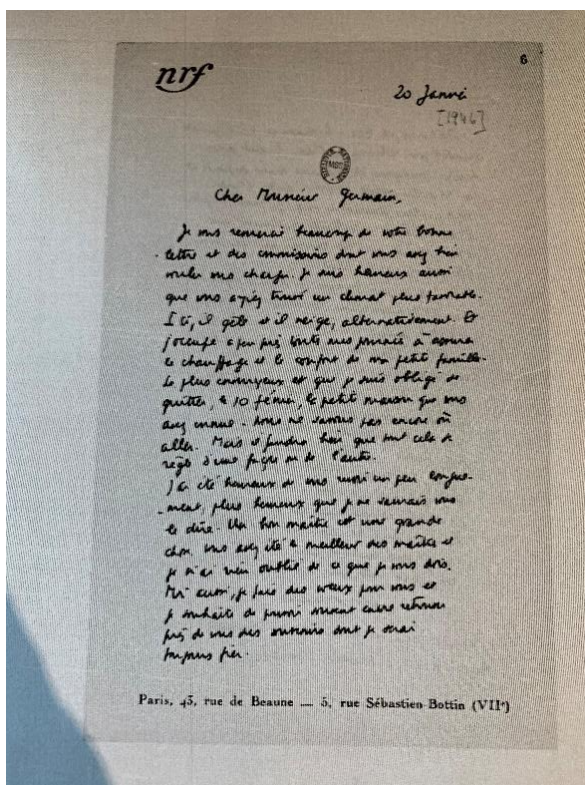 nrf
6
20 Janvi
[1946]
Cher Monsieur Germain,
Je vous remercie beaucoup de votre bonne
lettre et des commissions dont vous avez bien
voulu vous charger. Je suis heureux aussi
que vous ayiez trouvé un climat plus favorable.
Ici, il gèle et il neige, alternativement. Et
j'occupe à peu près toutes mes journées à assurer
le chauffage et le confort de ma petite famille.
Le plus ennuyeux est que je suis obligé de
quitter, le 10 février, la petite maison que vous
avez connue. Nous ne savons pas encore où
aller. Mais il faudra bien que tout cela se
règle d'une façon ou de l'autre.
J'ai été heureux de vous revoir un peu longue-
ment, plus heureux que je ne saurais vous
le dire. Un bon maître est une grande
chose. Vous avez été le meilleur des maîtres et
je n'ai rien oublié de ce que je vous dois.
Moi aussi, je fais des voeux pour vous et
je souhaite de pouvoir souvent encore retrouver
près de vous des souvenirs dont je serai
toujours fier.
Paris, 43, rue de Beaune — 5, rue Sébastien-Bottin (VIIe)